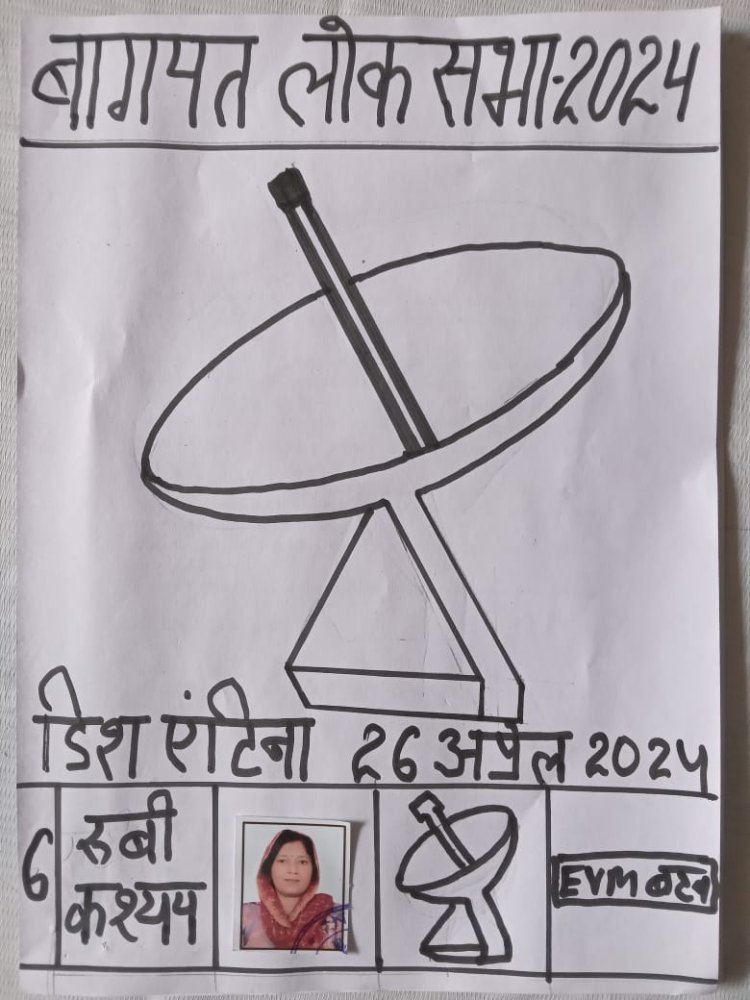 बागपत लोक सभा-2024
डिश एंटिना 26 अप्रेल 2024
6 रूबी कश्यप EVM बटन